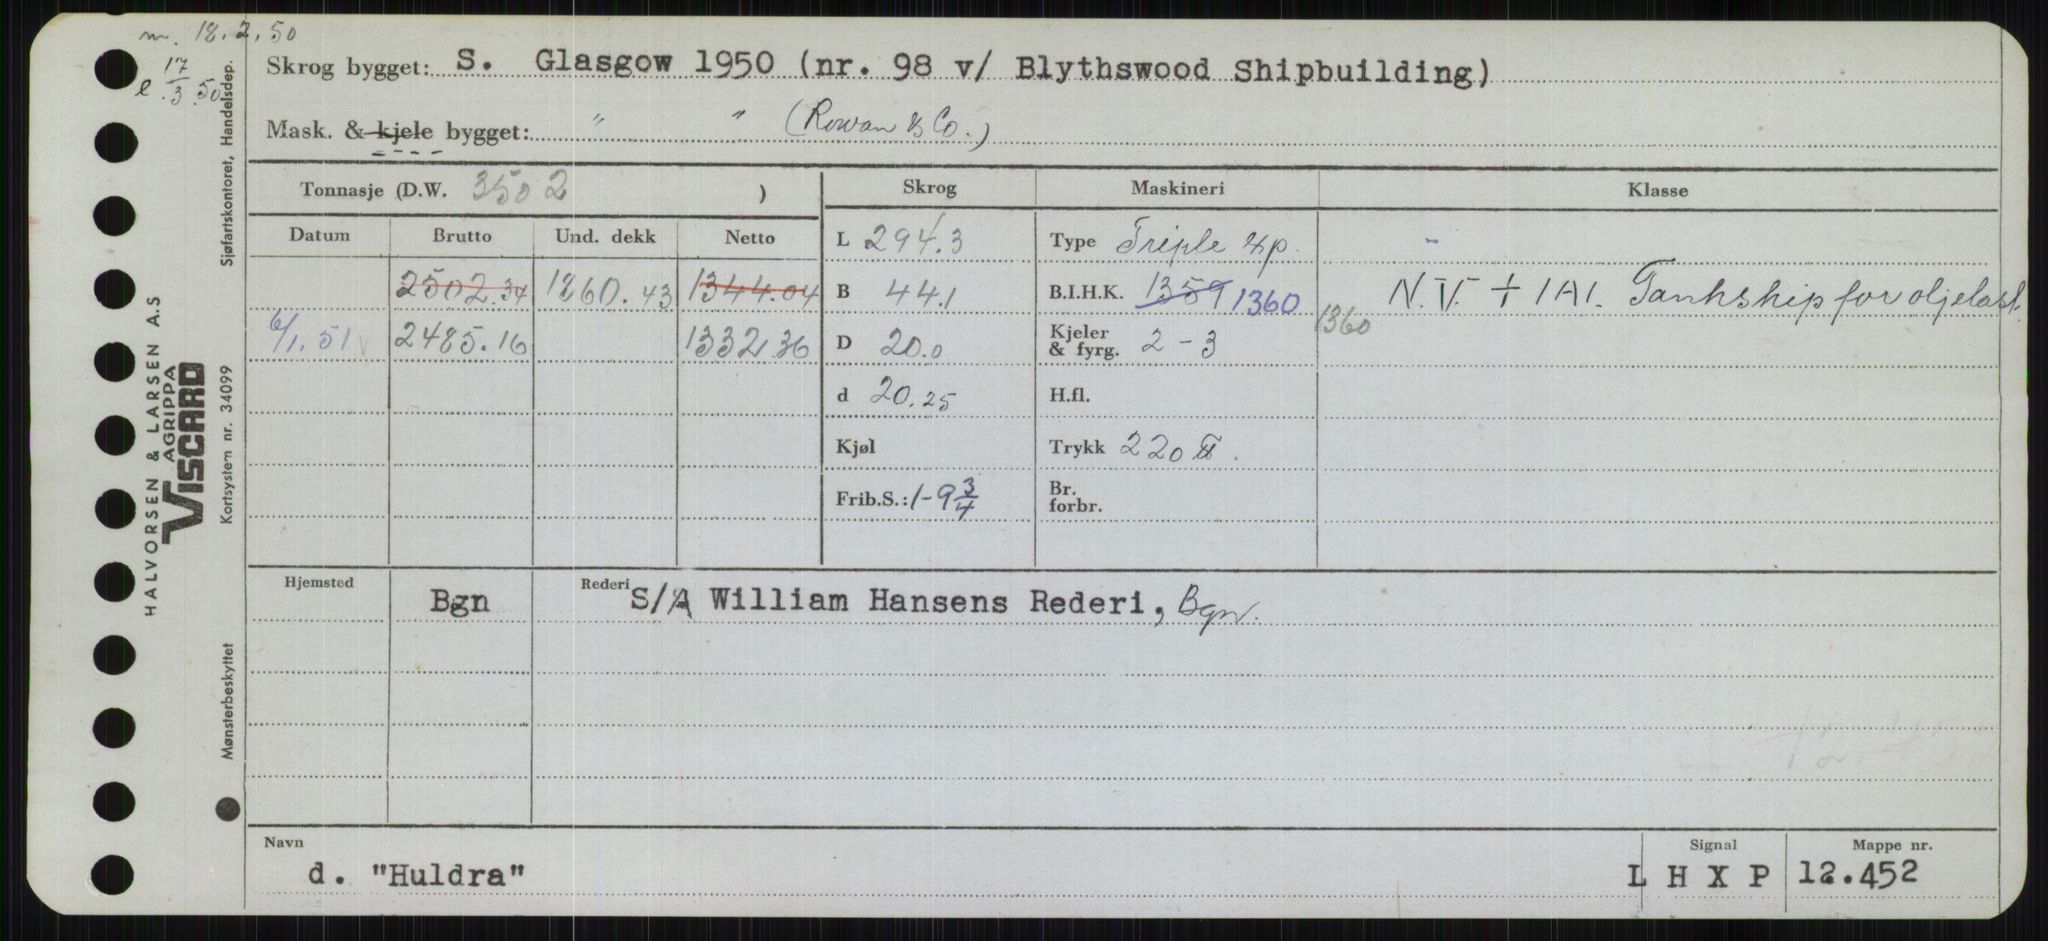 m. 18.2.50
l 17/3.50
Skrog bygget: S. Glasgow 1950 (nr. 98 v/ Blythswood Shipbuilding)
Mask. & kjele bygget: " " (Rowan & Co.)
Tonnasje (D.W. 3502 )
Skrog
Maskineri
Klasse
Datum Brutto Und. dekk Netto
L 294.3
Type Triple Exp.
2502.34 1860.43 1344.04
B 44.1
B.I.H.K. 1359 1360
1360
N.V. + 1A1. Tankship for oljelast.
6/1.51 2485.16 1332.36
D 20.0
Kjeler & fyrg. 2-3
d 20.25
H.fl.
Kjøl
Trykk 220 lb.
Frib.S.: 1-9 3/4
Br. forbr.
Hjemsted Bgn
Rederi S/A William Hansens Rederi, Bgn.
Navn
d. "Huldra"
Signal
L H X P
Mappe nr.
12.452
Sjøfartskontoret, Handelsdep.
Kortsystem nr. 34099
Mønsterbeskyttet
HALVORSEN & LARSEN A.S
AGRIPPA
VISCARD